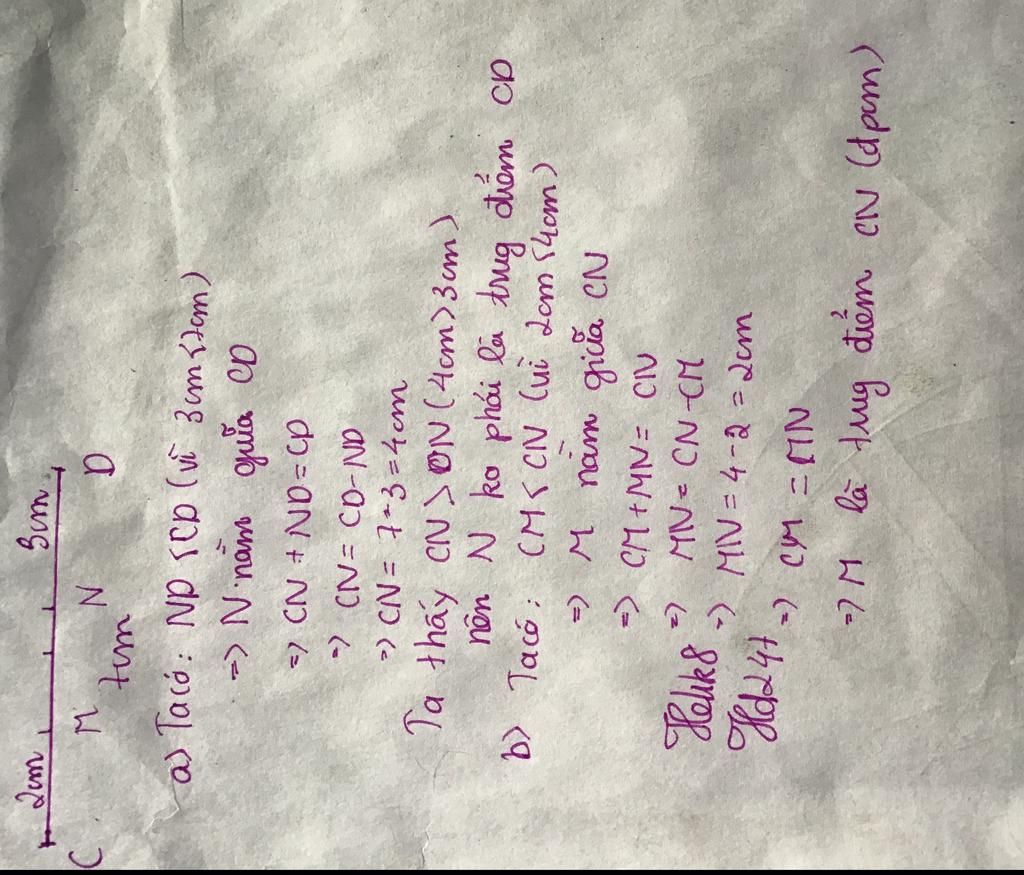 2cm 3cm
C M N D
7cm
a) Ta có: ND < CD (vì 3cm < 7cm)
=> N nằm giữa CD
=> CN + ND = CD
=> CN = CD - ND
=> CN = 7-3 = 4cm
Ta thấy CN > DN (4cm > 3cm)
nên N ko phải là trug điểm CD
b) Ta có: CM < CN (vì 2cm < 4cm)
=> M nằm giữa CN
=> CM + MN = CN
=> MN = CN - CM
=> MN = 4 - 2 = 2cm
=> CM = MN
=> M là trug điểm CN (đpcm)
Hd247